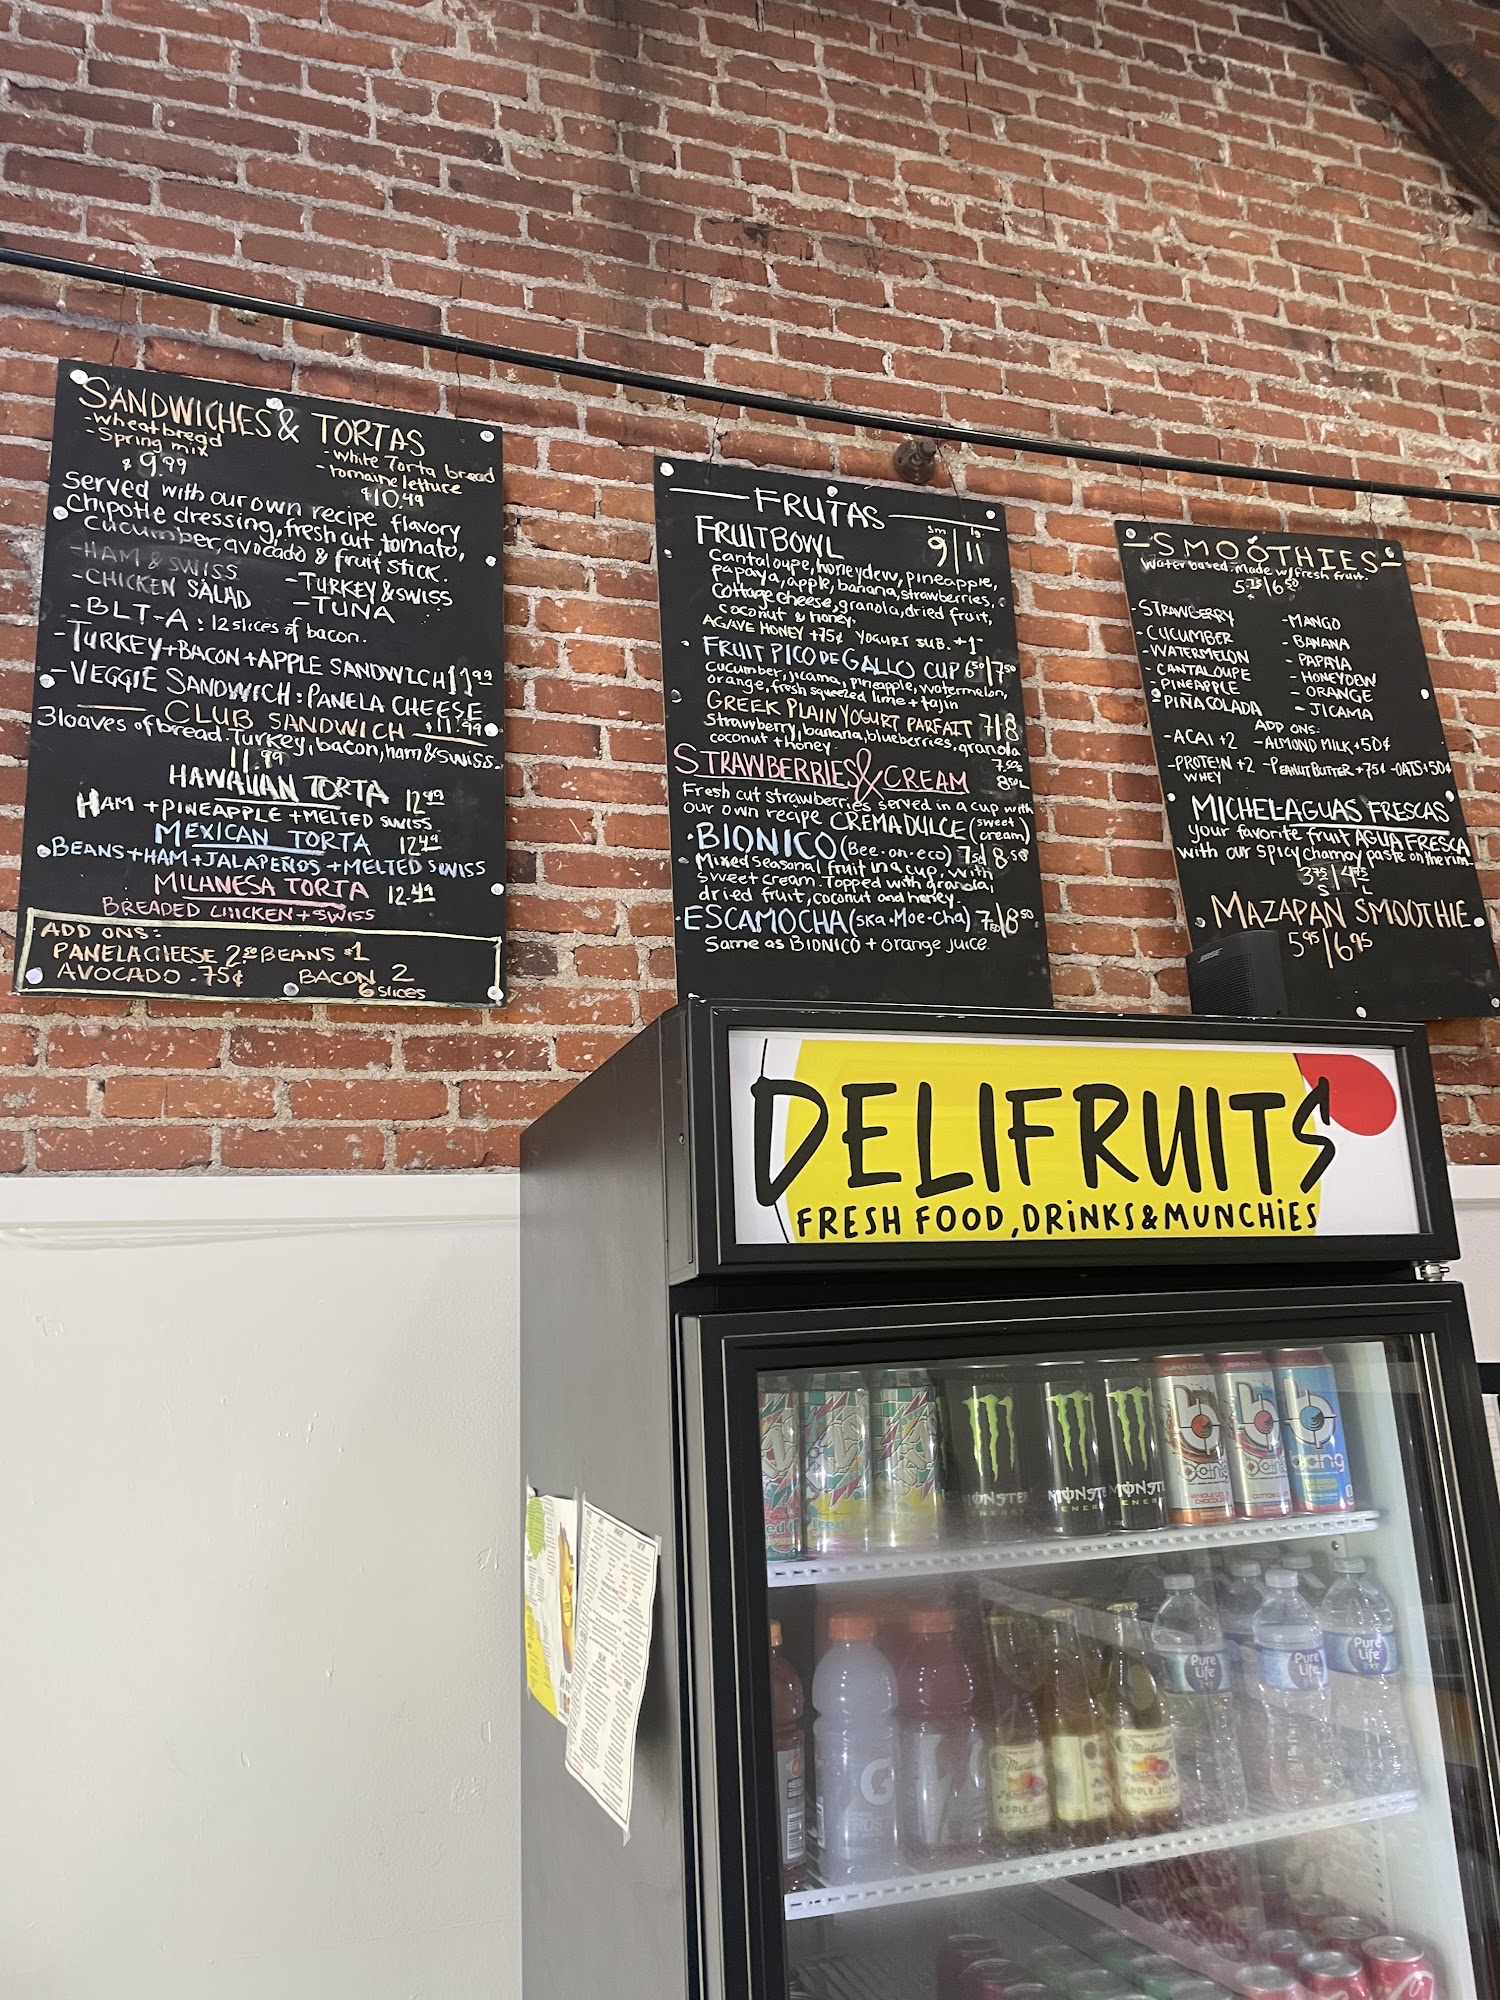 SANDWICHES & TORTAS
-wheat bread
-Spring mix
$9.99
-white Torta bread
-romaine letture
$10.49
Served with our own recipe flavory
Chipotle dressing, fresh cut tomato,
cucumber, avocado & fruit stick.
-HAM & SWISS
-CHICKEN SALAD
-TURKEY & SWISS
-TUNA
-BLT-A: 12 slices of bacon.
-TURKEY+BACON+APPLE SANDWICH 11.99
-VEGGIE SANDWICH: PANELA CHEESE
CLUB SANDWICH $11.99
3 loaves of bread. Turkey, bacon, ham & swiss.
11.99
HAWAIIAN TORTA 12.49
HAM + PINEAPPLE + MELTED SWISS
MEXICAN TORTA 12.49
BEANS+HAM+JALAPEÑOS+MELTED SWISS
MILANESA TORTA 12.49
BREADED CHICKEN + SWISS
ADD ONS:
PANELA CHEESE 2.50 BEANS $1
AVOCADO .75¢ BACON 2
6 slices
FRUTAS
sm lg
FRUIT BOWL 9|11
Cantaloupe, honeydew, pineapple,
papaya, apple, banana, strawberries,
Cottage cheese, granola, dried fruit,
coconut & honey.
AGAVE HONEY +75¢ YOGURT SUB. +1-
FRUIT PICO DE GALLO CUP 6.50|7.50
cucumber, jicama, pineapple, watermelon,
orange, fresh squeezed lime + tajin
GREEK PLAIN YOGURT PARFAIT 7|8
Strawberry, banana, blueberries, granola
coconut + honey.
STRAWBERRIES & CREAM 7.50s
8.50L
Fresh cut strawberries served in a cup with
our own recipe CREMA DULCE (sweet cream)
BIONICO (Bee-on-eco) 7.50|8.50
Mixed seasonal fruit in a cup, with
sweet cream. Topped with granola,
dried fruit, coconut and honey.
ESCAMOCHA (ska-Moe-Cha) 7.50|8.50
Same as BIONICO + orange juice.
-SMOOTHIES-
Water based. made w/ fresh fruit.
5.75/6.50
-STRAWBERRY
-CUCUMBER
-WATERMELON
-CANTALOUPE
-PINEAPPLE
-PIÑA COLADA
-MANGO
-BANANA
-PAPAYA
-HONEYDEW
-ORANGE
-JICAMA
ADD ONS:
-ACAI +2 -ALMOND MILK +50¢
-PROTEIN +2 -PEANUT BUTTER +75¢ -OATS +50¢
WHEY
MICHEL-AGUAS FRESCAS
your favorite fruit AGUA FRESCA
with our spicy chamoy paste on the rim-
3.75|4.75
S L
MAZAPAN SMOOTHIE
5.95/6.95
BOSE
DELIFRUITS
FRESH FOOD, DRiNKS & MUNCHiES
MONSTER
ENERGY
MONSTER
ENERGY
bang
bang
bang
G
Martinelli's
APPLE JUICE
Pure
Life
Pure
Life
Pure
Life